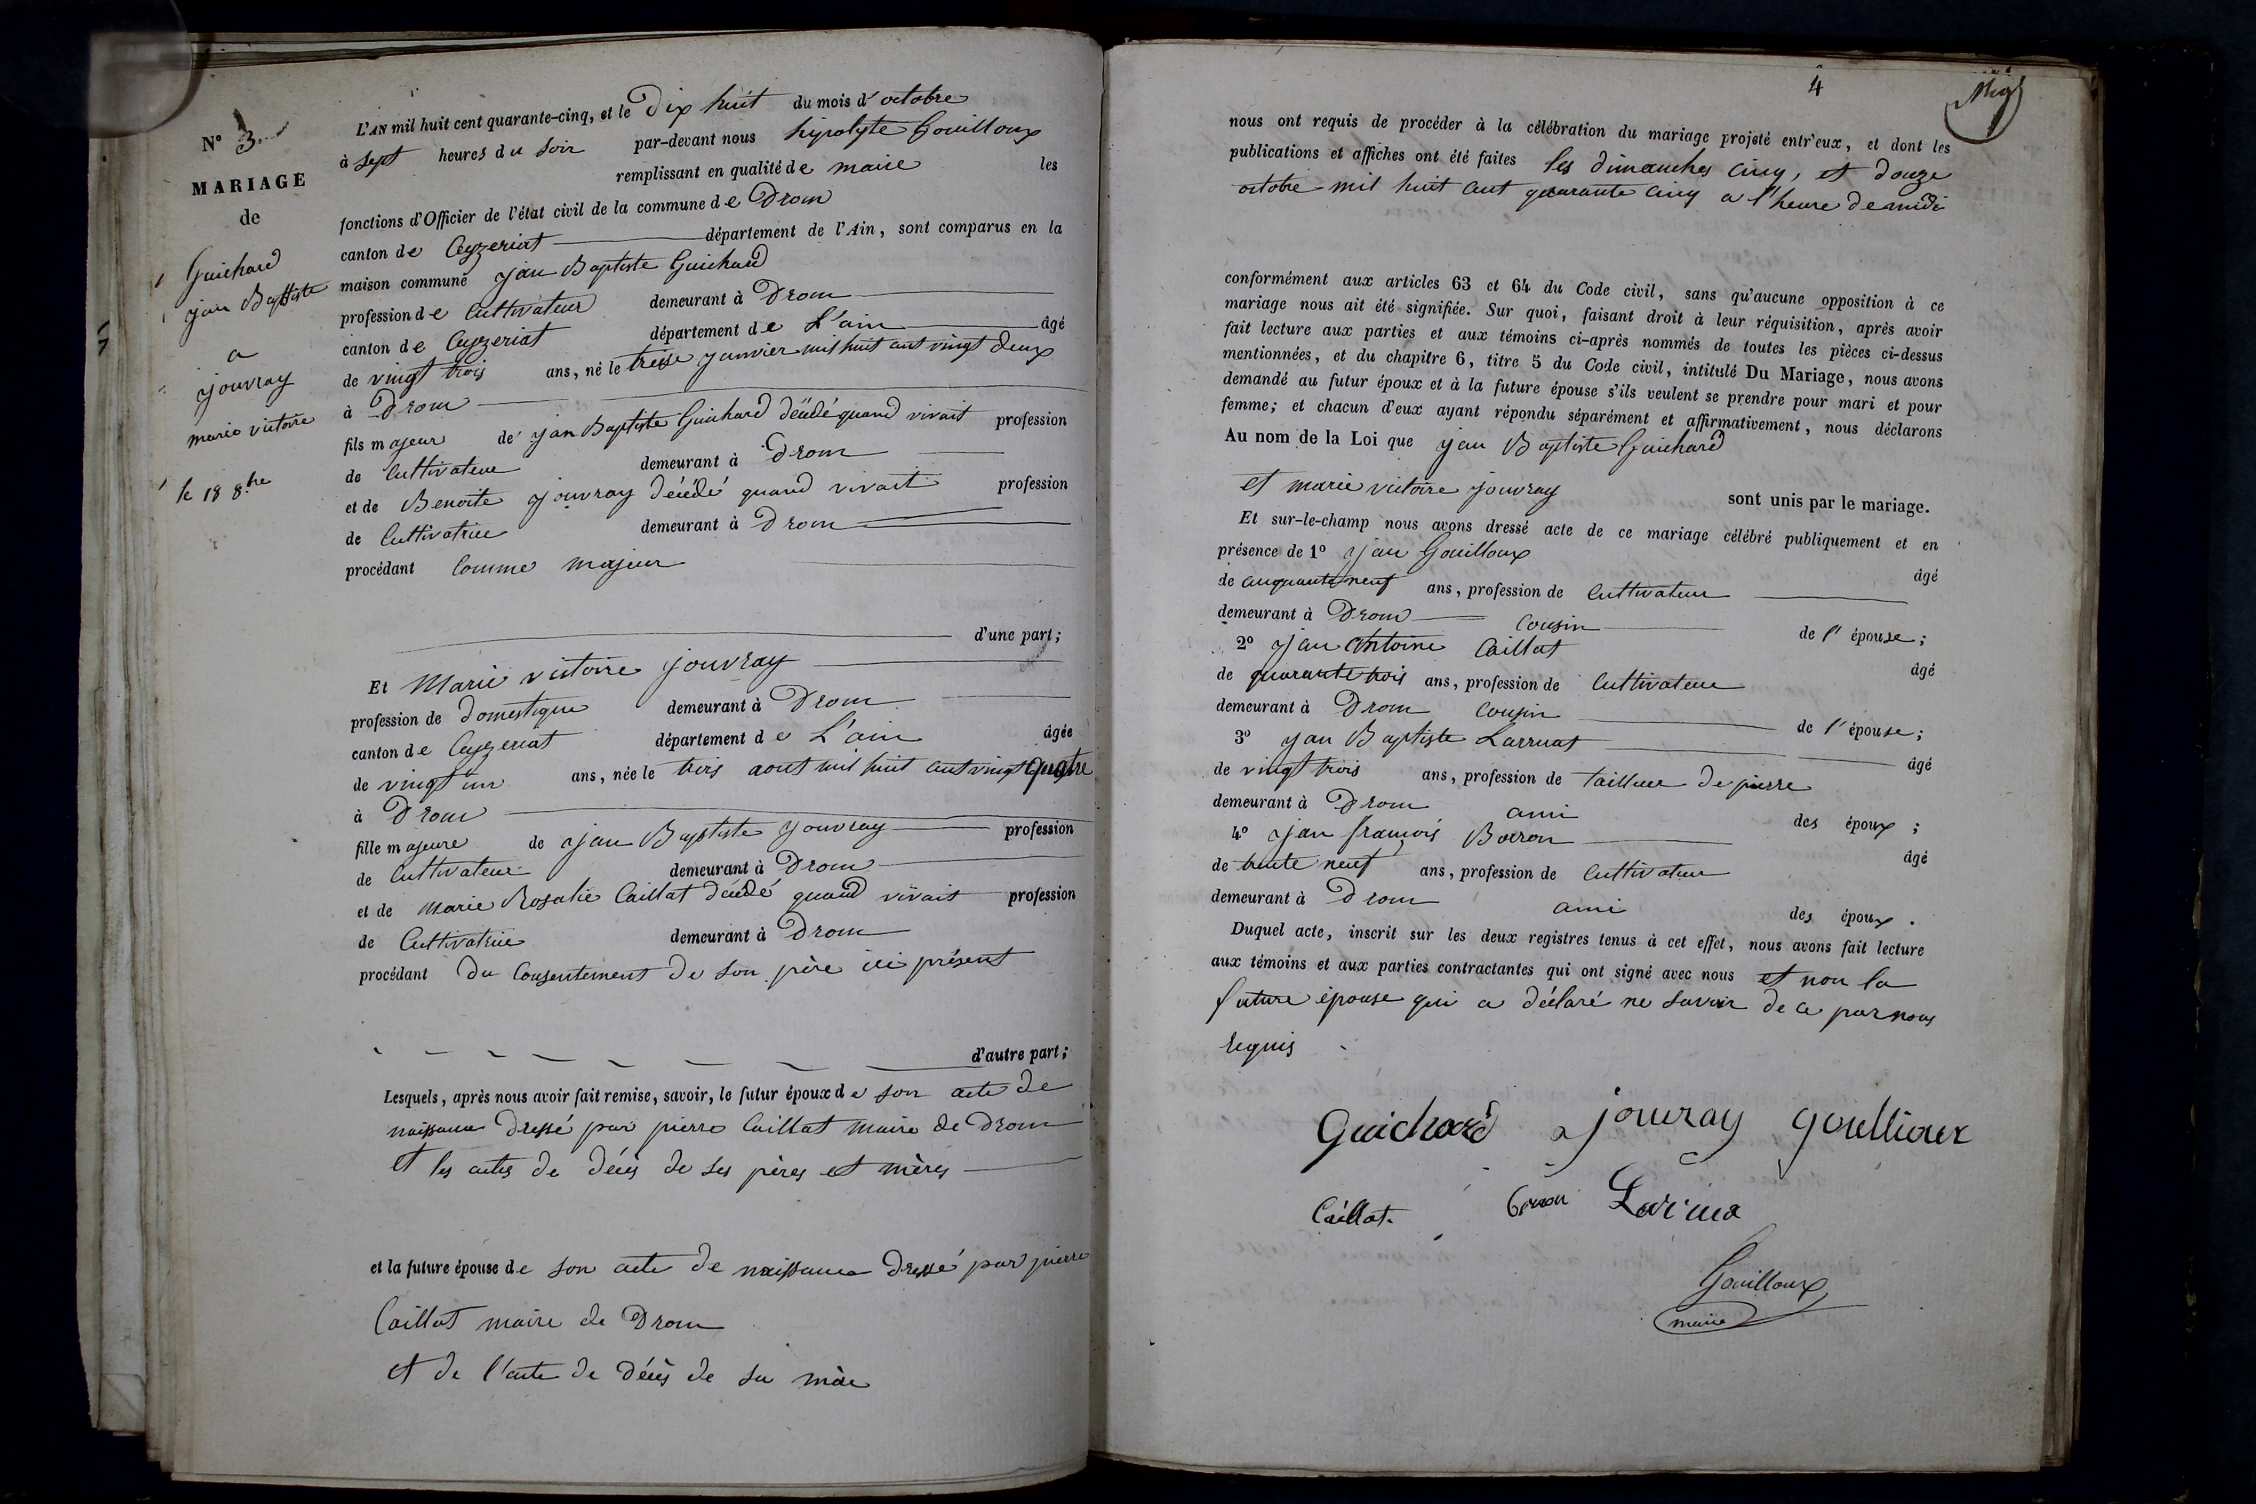 N° 3.
MARIAGE
de
Guichard
jean Baptiste
a
jouvray
marie victoire
le 18 8.bre
L'AN mil huit cent quarante-cinq, et le Dix huit du mois d'octobre
à sept heures du soir par-devant nous hipolyte Gouilloux
remplissant en qualité de maire les
fonctions d'Officier de l'état civil de la commune de Drom
canton de Ceyzeriat département de l'Ain, sont comparus en la
maison commune jean Baptiste Guichard
profession de Cultivateur demeurant à Drom
canton de Ceyzeriat département de L'ain âgé
de vingt trois ans, né le treise janvier mil huit cent vingt deux
à Drom
fils majeur de jean Baptiste Guichard décédé quand vivait profession
de Cultivateur demeurant à Drom
et de Benoite jouvray décédé quand vivait profession
de Cultivatrice demeurant à Drom
procédant Comme majeur
d'une part;
Et Marie victoire jouvray
profession de domestique demeurant à Drom
canton de Ceyzeriat département de L'ain âgée
de vingt un ans, née le trois aout mil huit cent vingt quatre
à Drom
fille majeure de jean Baptiste jouvray profession
de Cultivateur demeurant à Drom
et de marie Rosalie Caillat décédé quand vivait profession
de Cultivatrice demeurant à Drom
procédant du Consentement de son père ici présent
d'autre part;
Lesquels, après nous avoir fait remise, savoir, le futur époux de son acte de
naissance dressé par pierre Caillat maire de Drom
et les actes de décès de ses pères et mères
et la future épouse de son acte de naissance dressé par pierre
Caillat maire de Drom
et de l'acte de décès de sa mère
4
nous ont requis de procéder à la célébration du mariage projeté entr'eux, et dont les
publications et affiches ont été faites les dimanches cinq, et douze
octobre mil huit cent quarante cinq a l'heure de midi
conformément aux articles 63 et 64 du Code civil, sans qu'aucune opposition à ce
mariage nous ait été signifiée. Sur quoi, faisant droit à leur réquisition, après avoir
fait lecture aux parties et aux témoins ci-après nommés de toutes les pièces ci-dessus
mentionnées, et du chapitre 6, titre 5 du Code civil, intitulé Du Mariage, nous avons
demandé au futur époux et à la future épouse s'ils veulent se prendre pour mari et pour
femme; et chacun d'eux ayant répondu séparément et affirmativement, nous déclarons
Au nom de la Loi que jean Baptiste Guichard
et marie victoire jouvray sont unis par le mariage.
Et sur-le-champ nous avons dressé acte de ce mariage célébré publiquement et en
présence de 1° jean Gouilloux âgé
de cinquante neuf ans, profession de Cultivateur
demeurant à Drom cousin de l'épouse;
2° jean antoine Caillat âgé
de quarante trois ans, profession de Cultivateur
demeurant à Drom cousin de l'épouse;
3° jean Baptiste Larruat âgé
de vingt trois ans, profession de tailleur de pierre
demeurant à Drom ami des époux;
4° jean françois Borron âgé
de trente neuf ans, profession de Cultivateur
demeurant à Drom ami des époux.
Duquel acte, inscrit sur les deux registres tenus à cet effet, nous avons fait lecture
aux témoins et aux parties contractantes qui ont signé avec nous et non la
future épouse qui a déclaré ne savoir de ce par nous
requis
Guichard jouvray gouilloux
Caillat
Gouilloux
maire